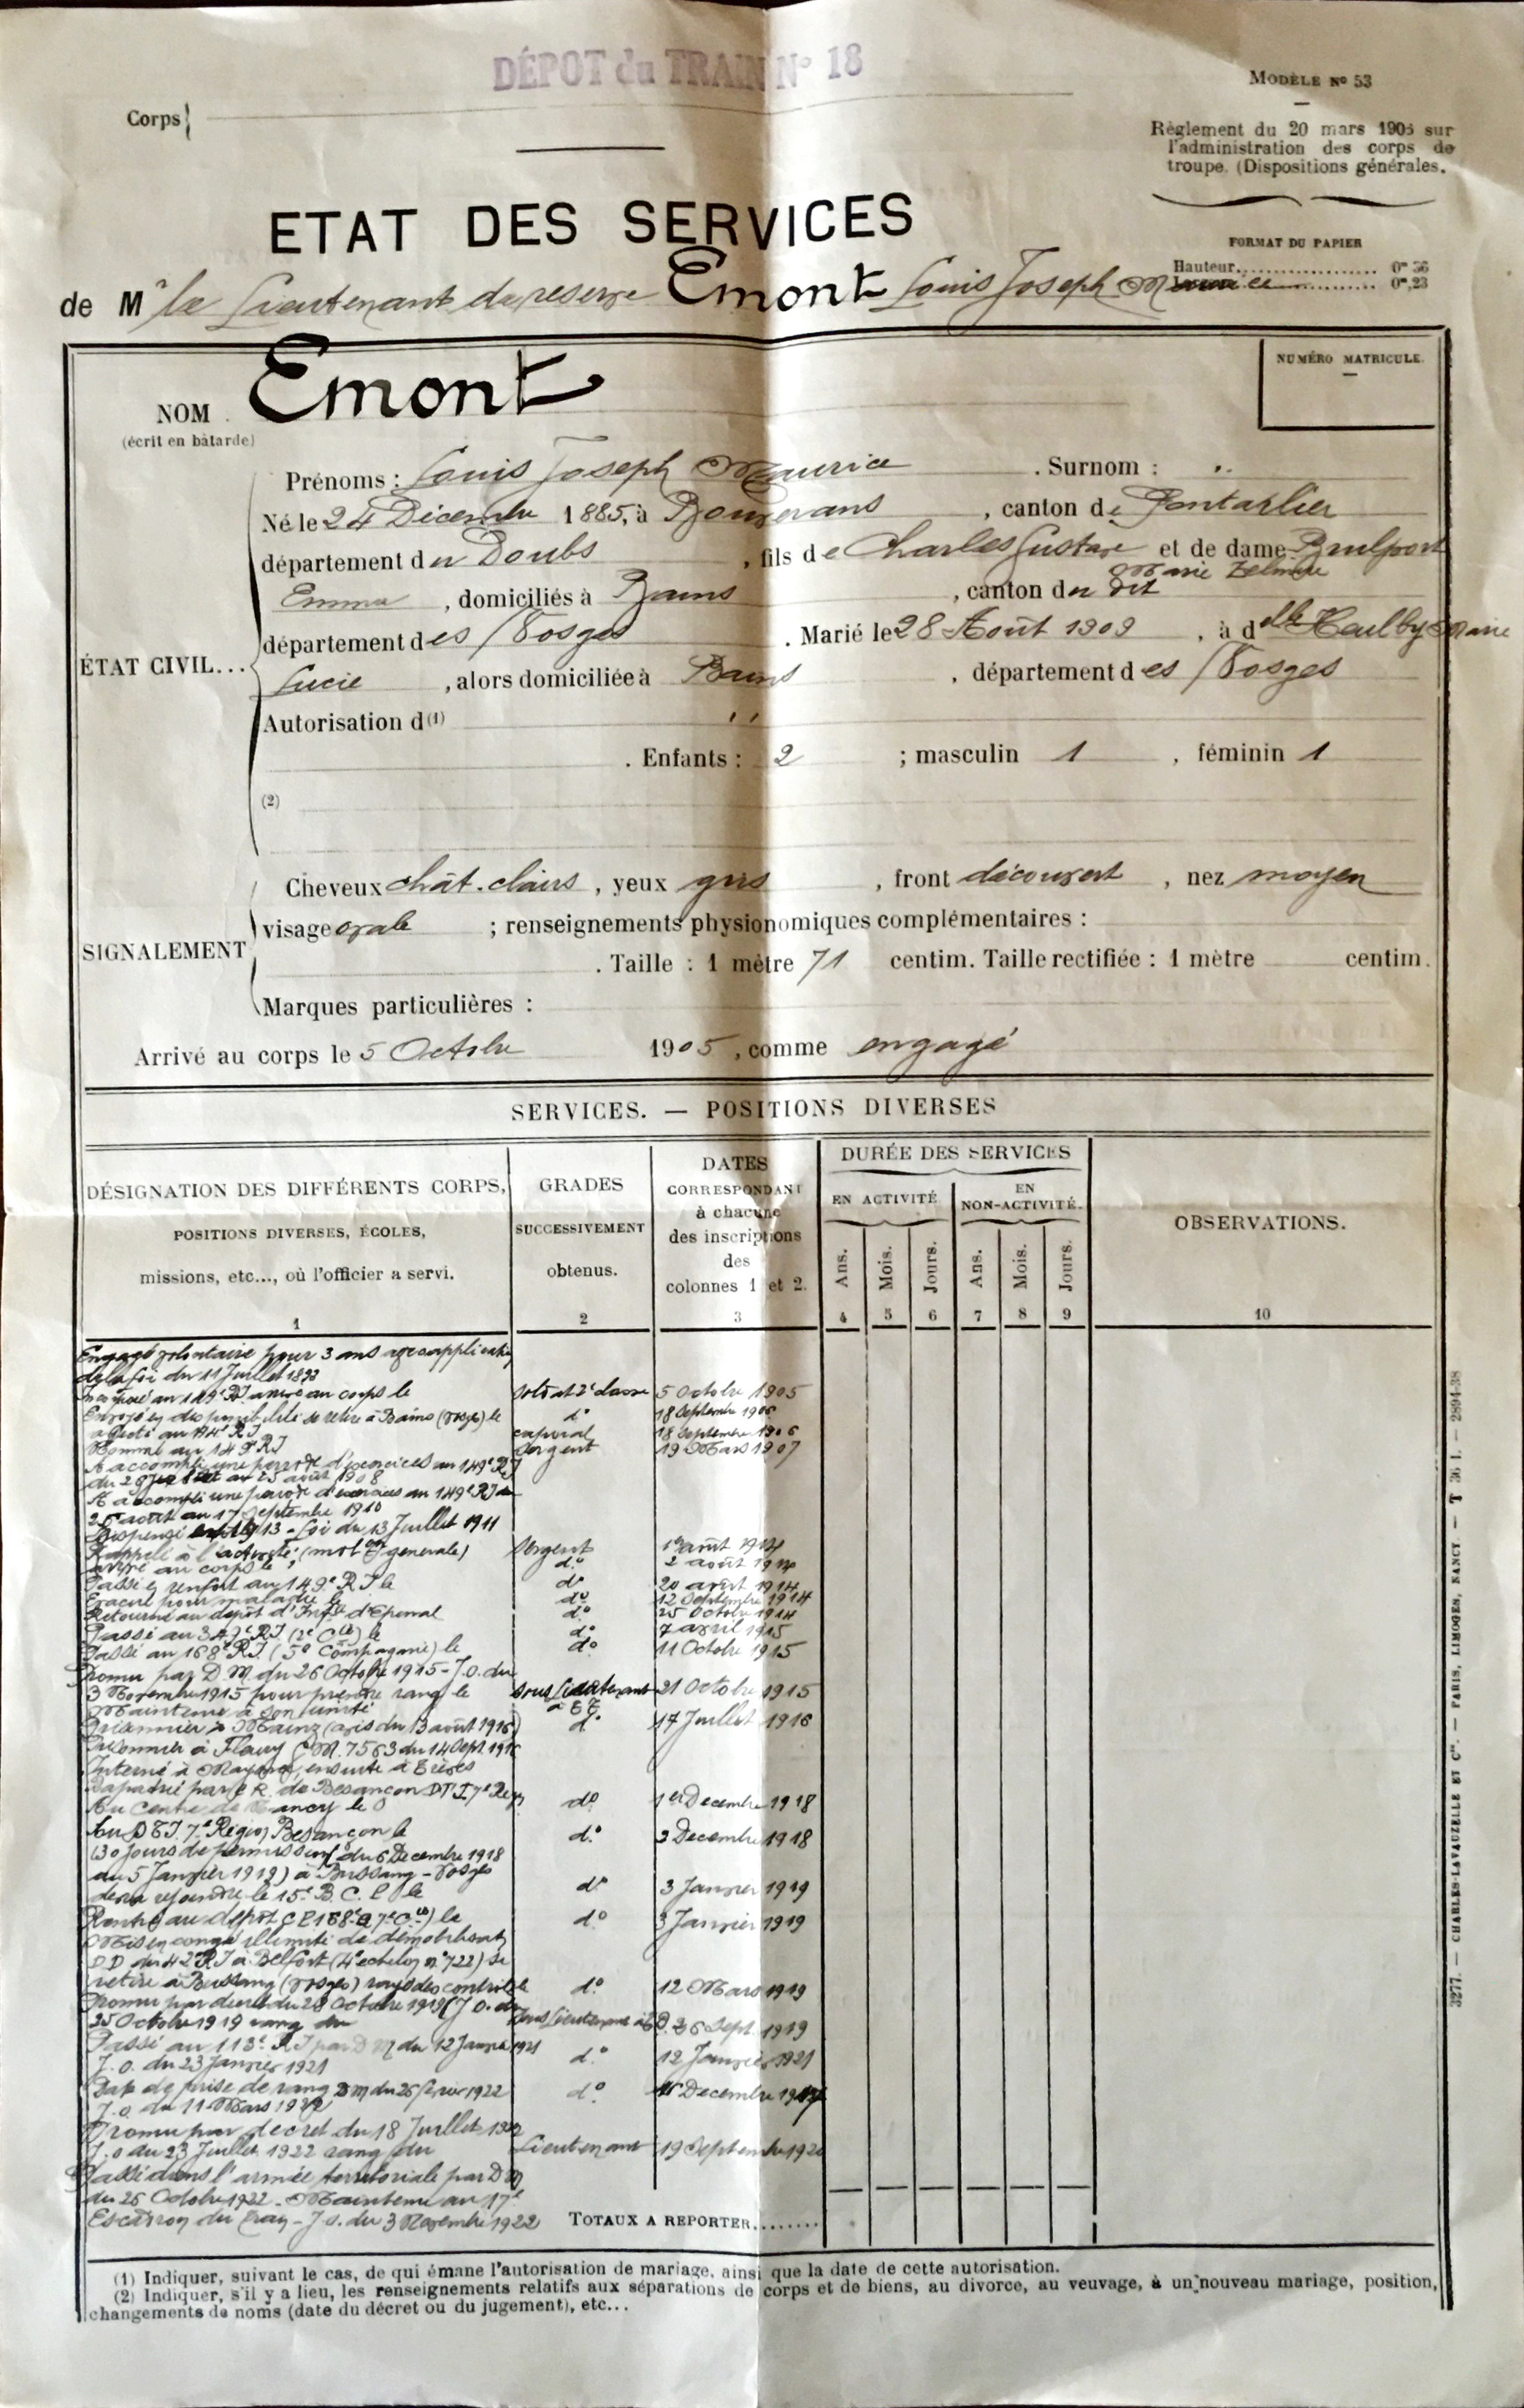 DÉPOT du TRAIN N° 18
Corps
MODÈLE No 53
Règlement du 20 mars 1905 sur
l'administration des corps de
troupe. (Dispositions générales.
ETAT DES SERVICES
FORMAT DU PAPIER
Hauteur.................. 0m 36
.................. 0m,23
de Mr le Lieutenant de reserve Emont Louis Joseph Maurice
NOM Emont
(écrit en bâtarde)
NUMÉRO MATRICULE.
Prénoms : Louis Joseph Maurice . Surnom : ..
Né le 24 Décembre 1885, à Bouverans , canton de Pontarlier
département du Doubs , fils de Charles Gustave et de dame Brulport
Marie Zelmire
Emma , domiciliés à Bains , canton du dit
département des Vosges . Marié le 28 Août 1909 , à dlle Heulby Marie
ÉTAT CIVIL...
Lucie , alors domiciliée à Bains , département des Vosges
Autorisation d(1) ''
. Enfants : 2 ; masculin 1 , féminin 1
(2)
Cheveux chât. clairs , yeux gris , front découvert , nez moyen
visage ovale ; renseignements physionomiques complémentaires :
SIGNALEMENT
. Taille : 1 mètre 71 centim. Taille rectifiée : 1 mètre centim.
Marques particulières :
Arrivé au corps le 5 Octobre 1905 , comme engagé
SERVICES. — POSITIONS DIVERSES
DÉSIGNATION DES DIFFÉRENTS CORPS,
POSITIONS DIVERSES, ÉCOLES,
missions, etc..., où l'officier a servi.
1
GRADES
SUCCESSIVEMENT
obtenus.
2
DATES
CORRESPONDANT
à chacune
des inscriptions
des
colonnes 1 et 2.
3
DURÉE DES SERVICES
EN ACTIVITÉ
EN
NON-ACTIVITÉ.
Ans. Mois. Jours. Ans. Mois. Jours.
4 5 6 7 8 9
OBSERVATIONS.
10
Engagé volontaire pour 3 ans avec application
de la loi du 11 Juillet 1892
au 149e RI arrivé au corps le soldat 2e classe 5 Octobre 1905
Envoyé en disponibilité se retire à Bains (Vosges) le do 18 Septembre 1906
RI caporal 18 Septembre 1906
Nommé au 149e RI Sergent 19 Mars 1907
A accompli une période d'exercices au 149e RI
du au 25 août 1908
A accompli une période d'exercices au 149e RI du
26 août au 17 Septembre 1910
Dispensé 13 - Loi du 13 Juillet 1911
Rappelé à l'activité (mobon generale) Sergent 1er août 1914
arrivé au corps le do 2 août 1914
Passé en renfort au 149e RI le do 20 août 1914
Evacué pour maladie le do 12 Septembre 1914
Retourné au dépôt d'Infrie d'Epinal do 25 Octobre 1914
Passé au 349e RI (2e Cie) le do 7 avril 1915
Passé au 168e RI. (5e Compagnie) le do 11 Octobre 1915
Promu par D.M. du 26 Octobre 1915 - J.O. du
3 Novembre 1915 pour prendre rang le sous Lieutenant 21 Octobre 1915
Maintenu à son unité à TT
Prisonnier à Mainz (avis du 13 août 1916) do 17 Juillet 1916
Prisonnier à Fleury 7563 du 14 Sept. 1916
Interné à Mayence, ensuite à Trèves
Rapatrié par de Besançon
Au Centre de Nancy le do 1er Decembre 1918
Au DTI. 7e Région Besançon le do 2 Decembre 1918
(30 jours de permission du 6 Decembre 1918
au 5 Janvier 1919) à Bussang - Vosges
devra rejoindre le 15e B.C. le do 3 Janvier 1919
Rentré au dépôt le do 3 Janvier 1919
Mis en congé illimité de démobilisation
D.D du 42e RI à Belfort (4e echelon no 722) se
retire à Bussang (Vosges) rayé des contrôles le do 12 Mars 1919
Promu par décret du 28 Octobre 1919 (J.O. du
25 Octobre 1919 rang du Sous Lieutenant à TD. 6 Sept. 1919
Passé au 113e RI par D M du 12 Janvier 1921
J.O. du 23 Janvier 1921 do 12 Janvier 1921
Date de prise de rang DM du 26 février 1922 do Decembre
J.O. du 11 Mars 1922
Promu par decret du 18 Juillet 1922
J.O du 23 Juillet 1922 rang du Lieutenant 19 Septembre
Passé dans l'armée territoriale par DM
du 26 Octobre 1922 - Maintenu au 17e
Escadron du Train - J.O. du 3 Novembre 1922 TOTAUX A REPORTER........
(1) Indiquer, suivant le cas, de qui émane l'autorisation de mariage, ainsi que la date de cette autorisation.
(2) Indiquer, s'il y a lieu, les renseignements relatifs aux séparations de corps et de biens, au divorce, au veuvage, à un nouveau mariage, position,
changements de noms (date du décret ou du jugement), etc...
3277. — CHARLES-LAVAUZELLE ET Cie. — PARIS, LIMOGES, NANCY. — T 36 1. — 2894-38